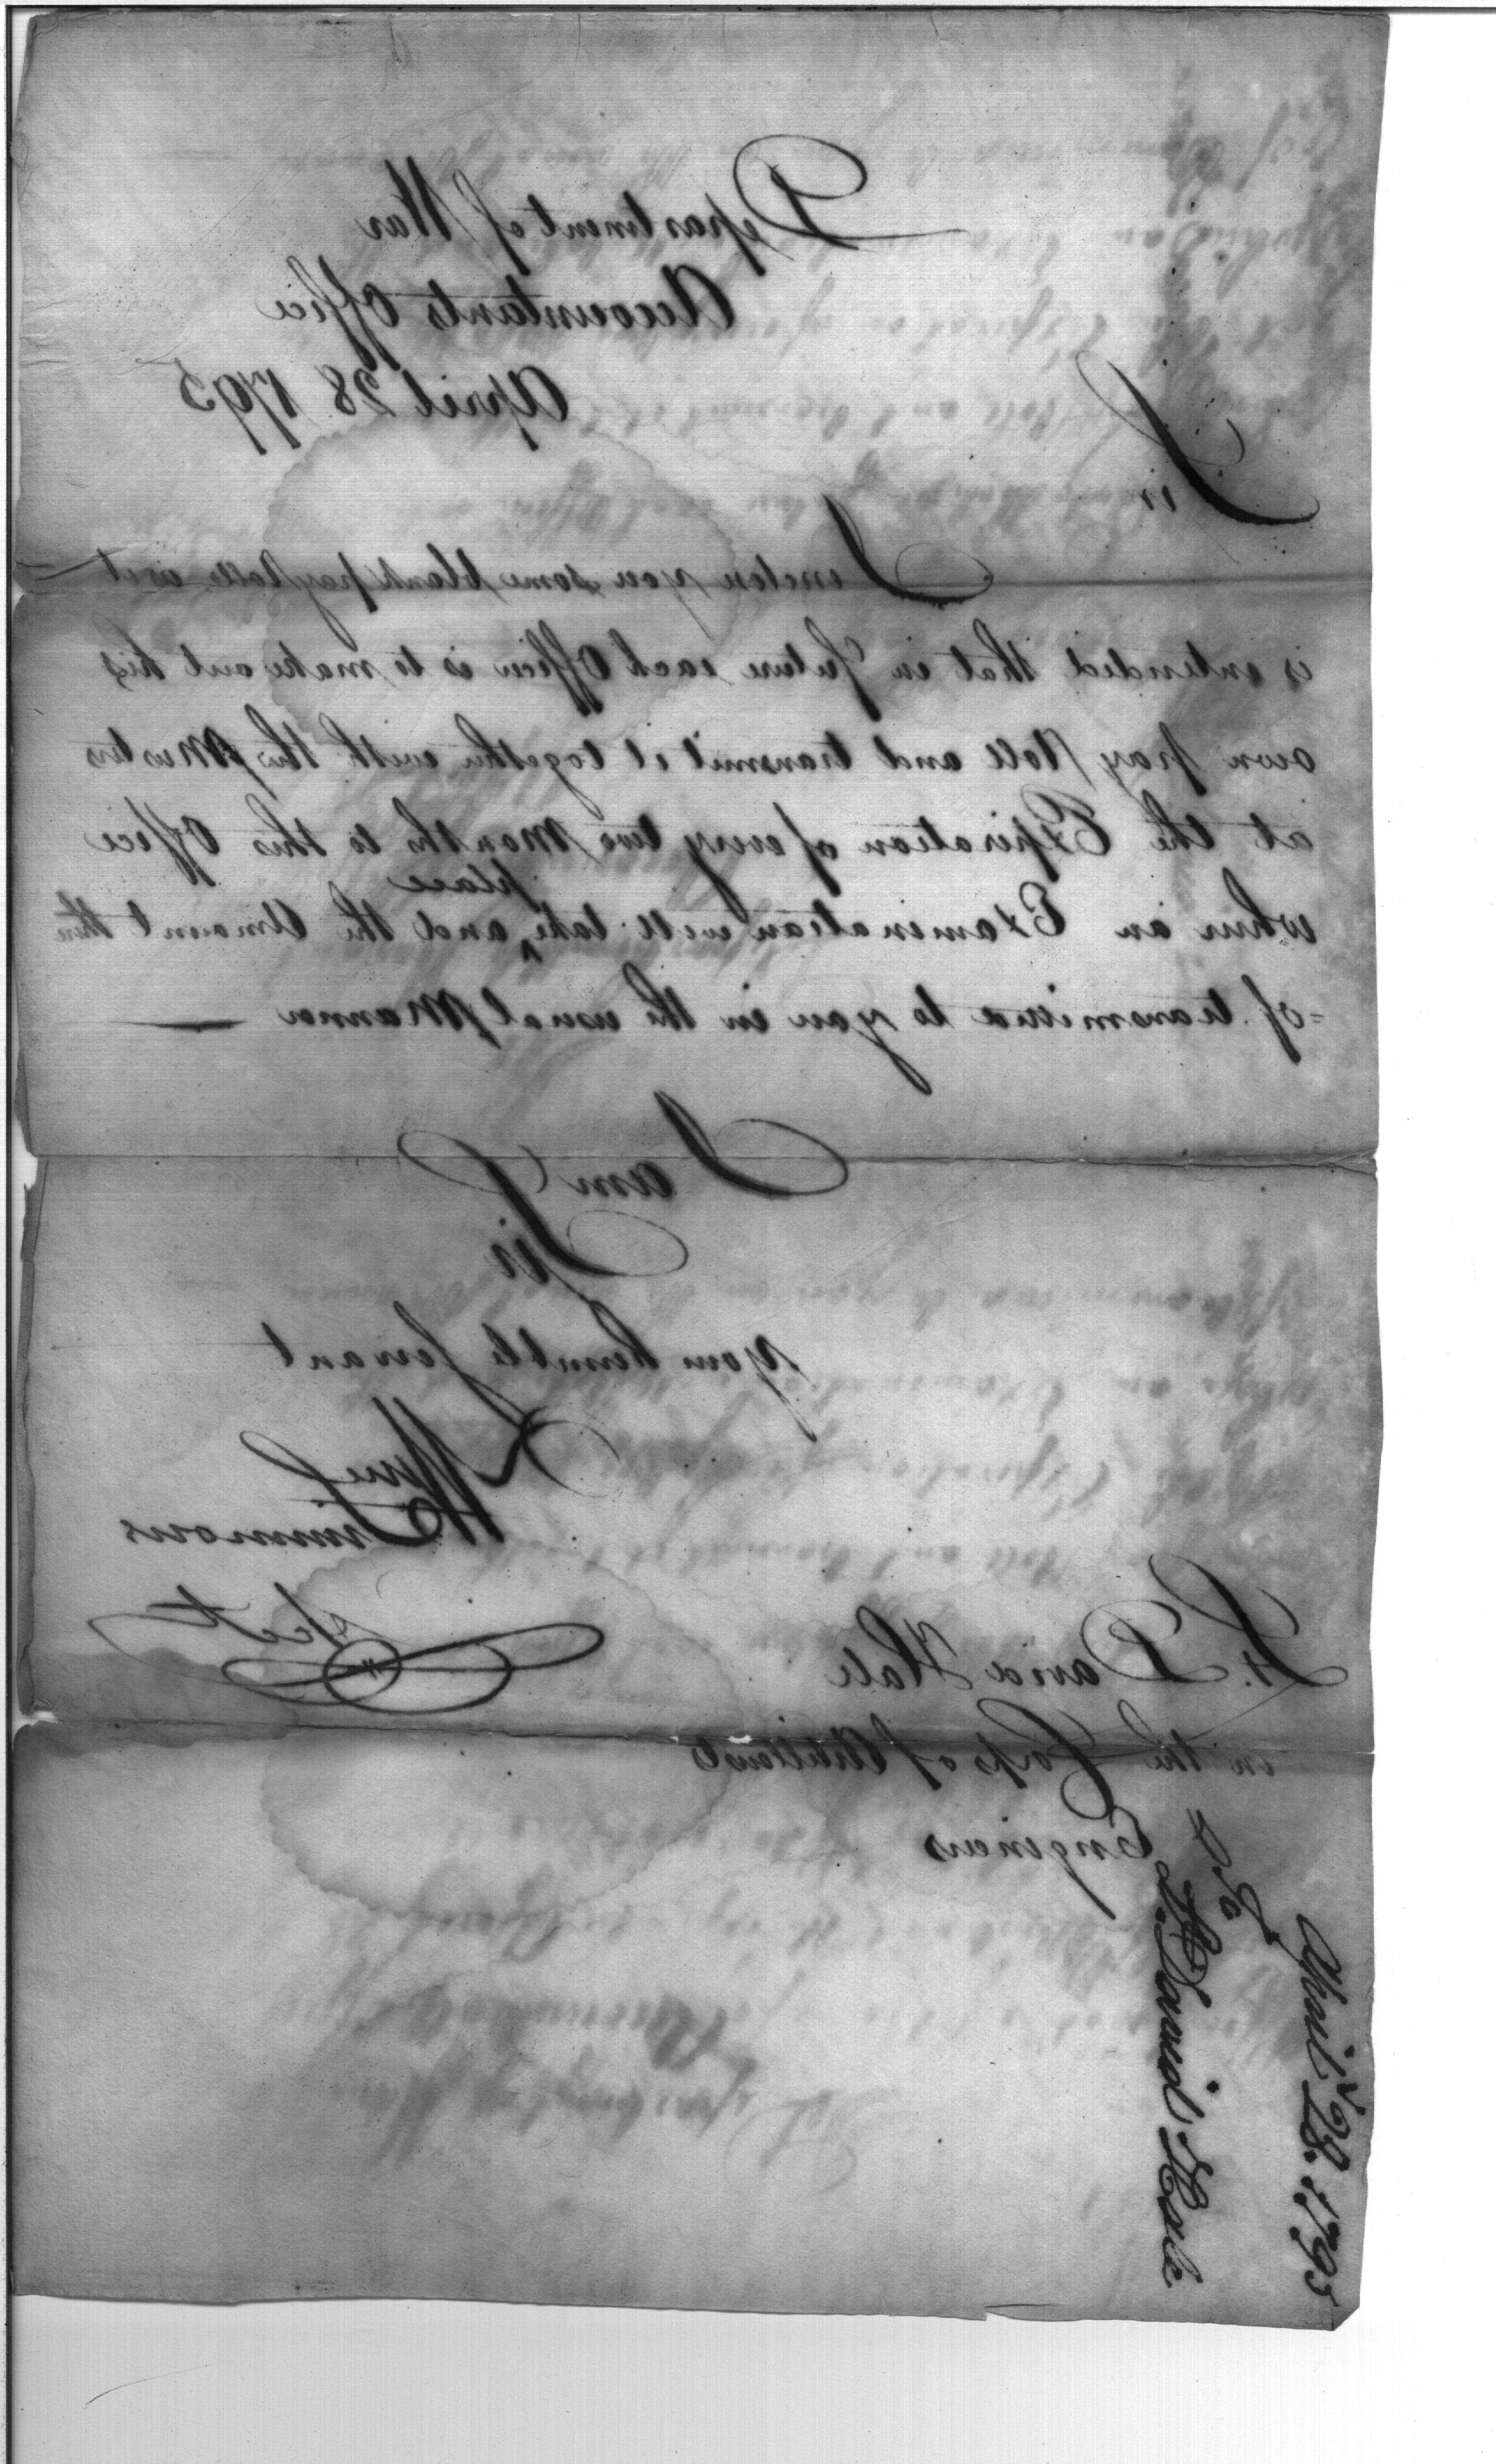 Department of War
Accountants Office
April 28 1795
Sir
I inclose you some blank pay Rolls as it
is intended that in future each Officer is to make out his
own pay Roll and transmit it together with the Musters
at the Expiration of every two Months to this Office
place
when an Examination will take ‸ and the Amount there
=of transmitted to you in the usual Manner
I am
Sir
your humble servant
Wm
Simmons
Acct
Lt. David Hale
in the Corps of Artillerists
Engineers
Lt. David Hale
April 28. 1795